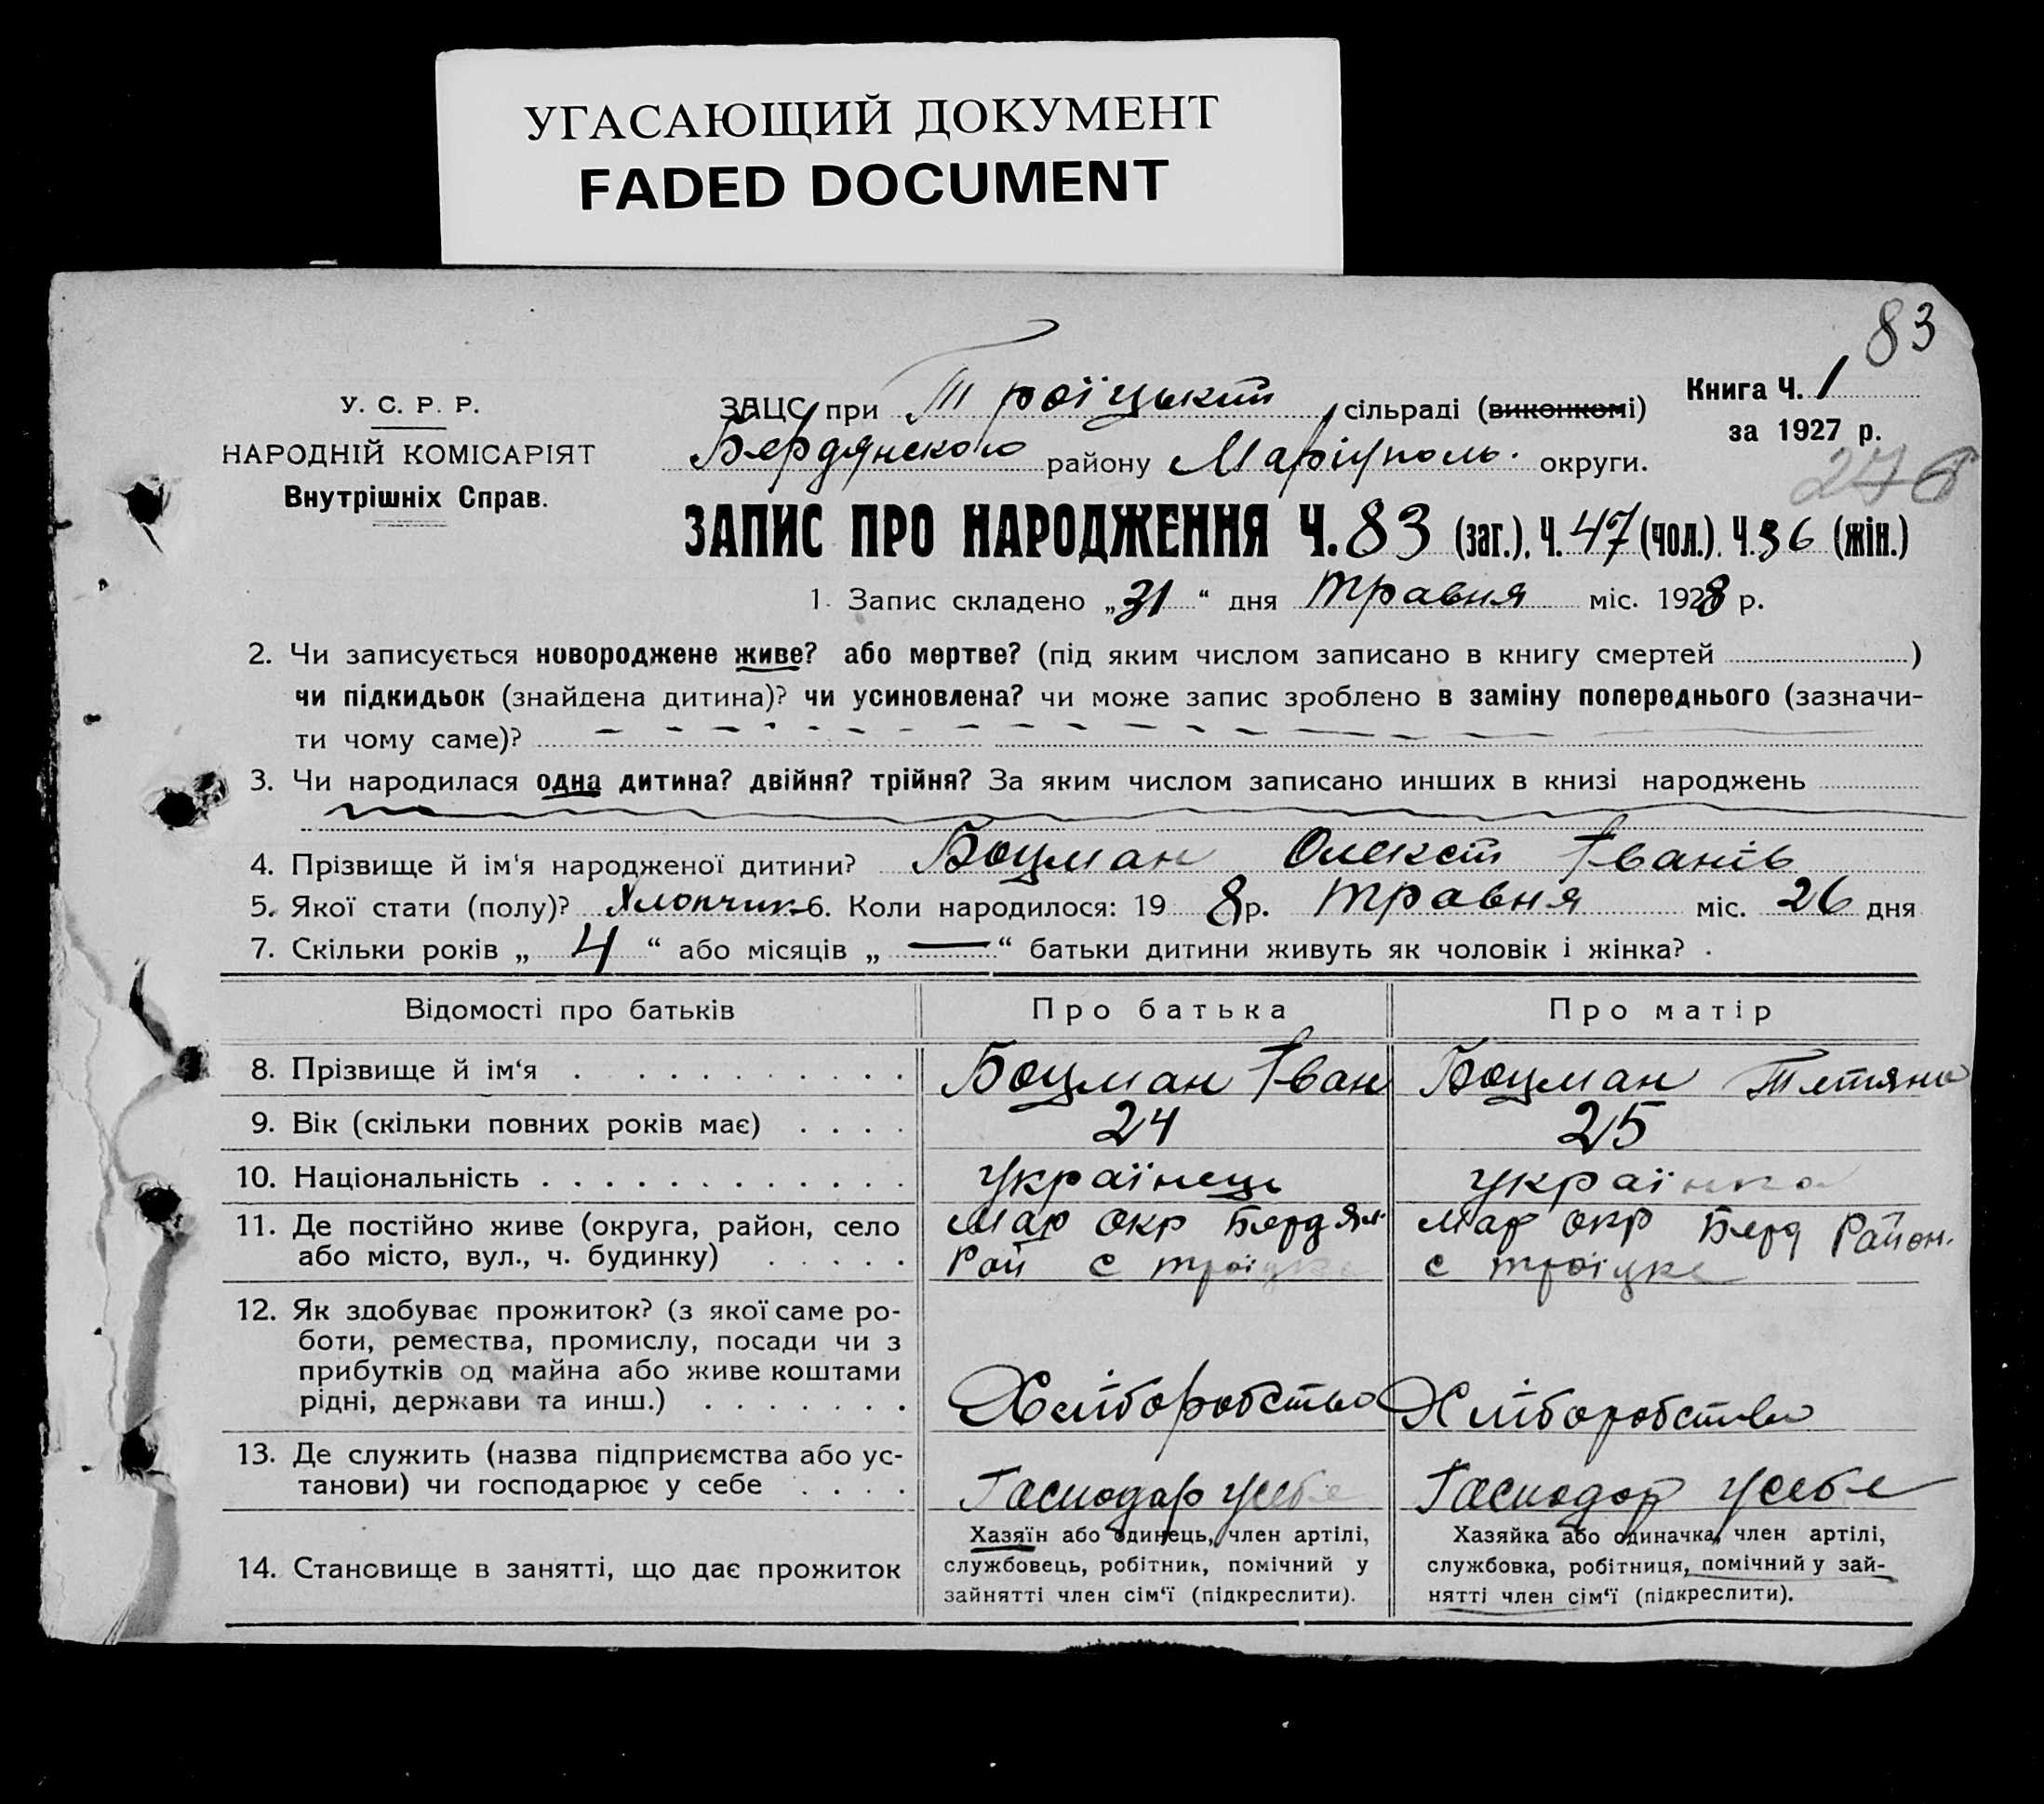 УГАСАЮЩИЙ ДОКУМЕНТ
FADED DOCUMENT
83
У. С. Р. Р.
НАРОДНІЙ КОМІСАРІЯТ
Внутрішніх Справ.
ЗАЦС при Троїцькій сільраді (виконкомі)
Бердянского району Маріуполь. округи.
Книга Ч. 1
за 1927 р.
ЗАПИС ПРО НАРОДЖЕННЯ Ч. 83 (заг.). Ч. 47 (чол.). Ч. 36 (жін.)
1. Запис складено „31“ дня травня міс. 1928 р.
2. Чи записується новороджене живе? або мертве? (під яким числом записано в книгу смертей )
чи підкидьок (знайдена дитина)? чи усиновлена? чи може запис зроблено в заміну попереднього (зазначи-
ти чому саме)?
3. Чи народилася одна дитина? двійня? трійня? За яким числом записано инших в книзі народжень
4. Прізвище й ім‘я народженої дитини? Боцман Олексій Іванів
5. Якої стати (полу)? Хлопчик 6. Коли народилося: 19 8 р. травня міс. 26 дня
7. Скільки років „ 4 “ або місяців „ — “ батьки дитини живуть як чоловік і жінка?
Відомості про батьків Про батька Про матір
8. Прізвище й ім‘я Боцман Іван Боцман Тетяна
9. Вік (скільки повних років має) 24 25
10. Національність українець українка
11. Де постійно живе (округа, район, село Мар окр Бердян. Мар окр Берд Район.
або місто, вул., ч. будинку) Рай с троїцке с троїцке
12. Як здобуває прожиток? (з якої саме ро-
боти, ремества, промислу, посади чи з
прибутків од майна або живе коштами
рідні, держави та инш.) Хліборобство Хліборобство
13. Де служить (назва підприємства або ус-
танови) чи господарює у себе Господар усебе Господар усебе
14. Становище в занятті, що дає прожиток
Хазяїн або одинець, член артілі,
службовець, робітник, помічний у
зайнятті член сім‘ї (підкреслити).
Хазяйка або одиначка, член артілі,
службовка, робітниця, помічний у зай-
нятті член сім‘ї (підкреслити).